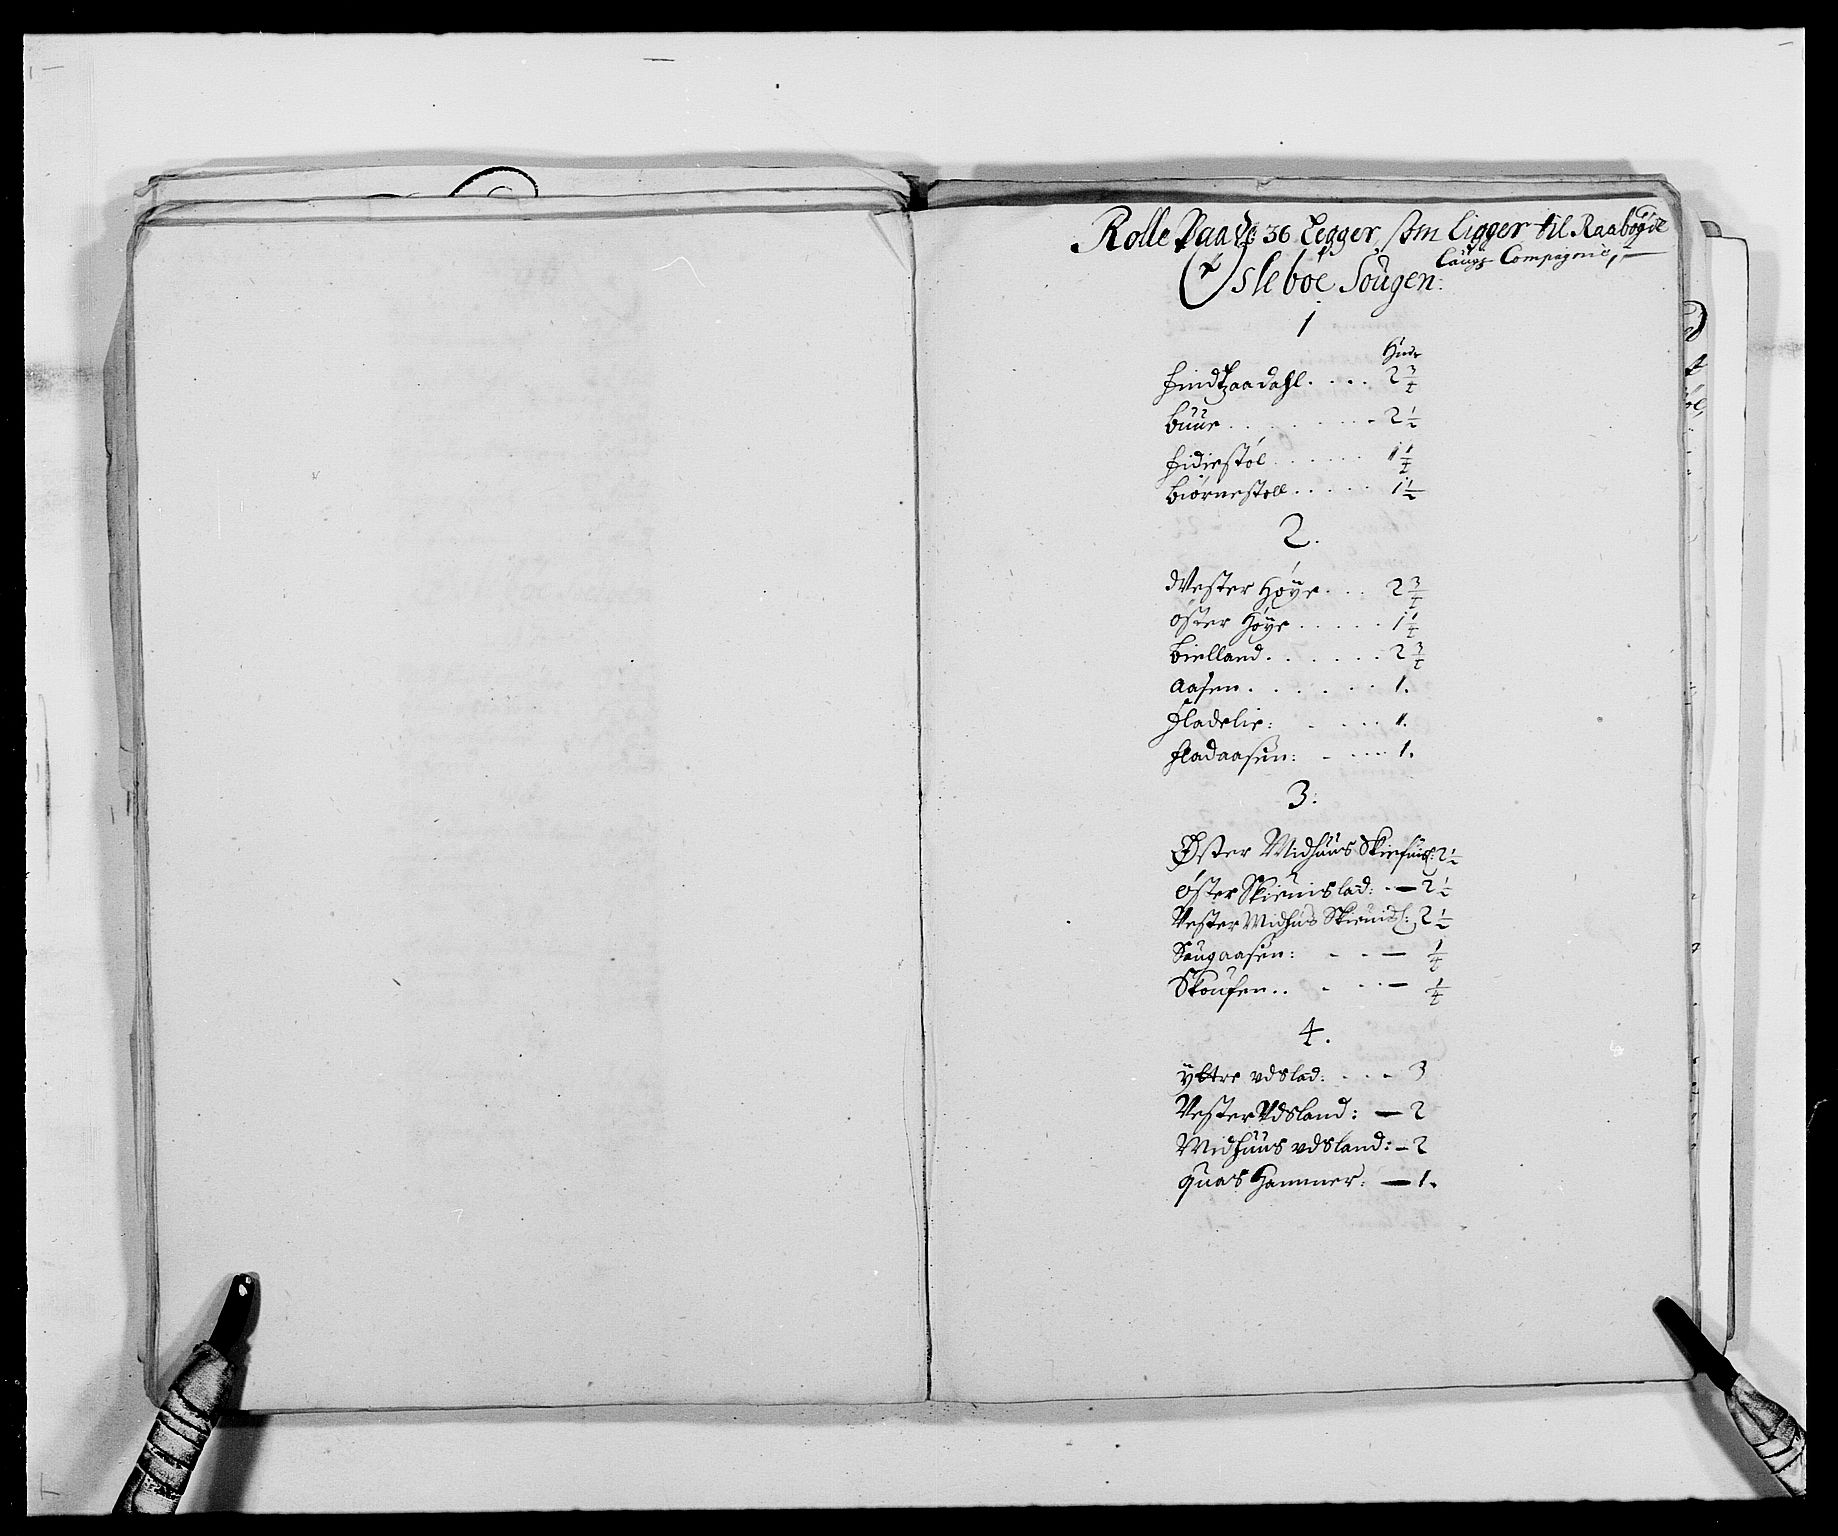 Rolle Paa de 36 Legger, som Ligger til Raabøgde
Laugs Compagnie,
Osleboe Sougen:
1
Hude
findtzaadahl.... 2 3/4
Buur........ - 2 1/2
fidiestøl...... 1 1/4
Biørnestoll..... 1 1/2
2.
Wester Høye... 2 3/4
øster Høye..... 1 1/4
Bielland....... 2 3/4
Aasen...... 1.
fladelie: - ... 1.
fladaasen: - .... 1.
3:
Øster Midhuus Skiefnisl: 2 1/2
øster Skieuislad: - — 2 1/2
Vester Midhus Skieuisl: 2 1/2
Saugaasen: - - — 1/4
Skoufen.. - .. — 1/4
4.
ÿttre vdslad: ... - 3
Vester Vdsland: — 2
Midhuus vdsland: - 2
quas Hammer: — 1.